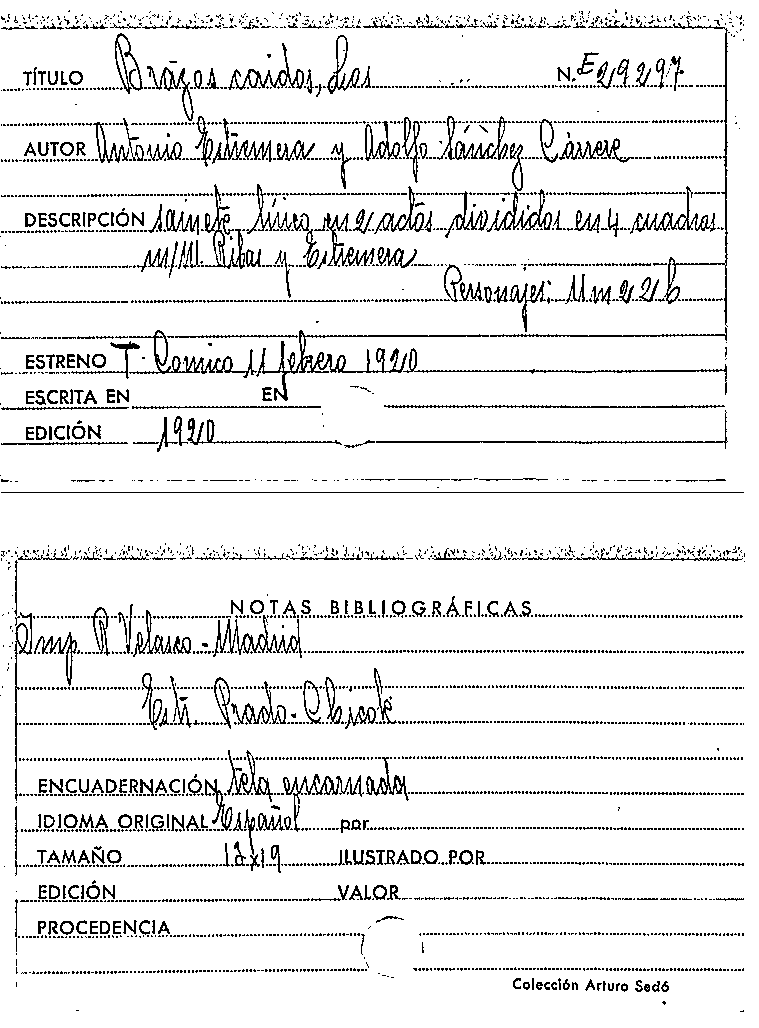 TÍTULO Brazos caídos, Los N. E 29297
AUTOR Antonio Estremera y Adolfo Sánchez Cárrere
DESCRIPCIÓN Sainete lírico en 2 actos divididos en 4 cuadros
m/M. Ribas y Estremera
Personajes: 11 m 22 h
ESTRENO T. Comico 11 febrero 1920
ESCRITA EN EN
EDICIÓN 1920
NOTAS BIBLIOGRÁFICAS
Imp. R Velasco - Madrid
Estr. Prado - Chicote
ENCUADERNACIÓN tela encarnada
IDIOMA ORIGINAL Español por
TAMAÑO 12x19 ILUSTRADO POR
EDICIÓN VALOR
PROCEDENCIA
Colección Arturo Sedó